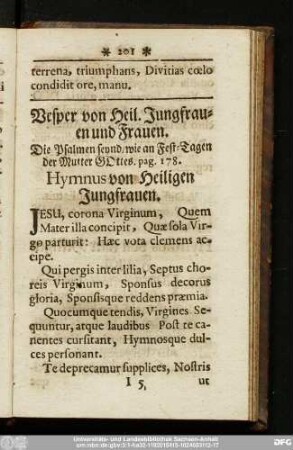 * 201 *
terrena, triumphans, Divitias cœlo
condidit ore, manu.
Vesper von Heil. Jungfrau-
en und Frauen.
Die Psalmen seynd, wie an Fest-Tagen
der Mutter GOttes. pag. 178.
Hymnus von Heiligen
Jungfrauen.
JESU, corona Virginum, Quem
Mater illa concipit, Quæ sola Vir-
go parturit: Hæc vota clemens ac-
cipe.
Qui pergis inter lilia, Septus cho-
reis Virginum, Sponsus decorus
gloria, Sponsisque reddens præmia.
Quocumque tendis, Virgines Se-
quuntur, atque laudibus Post te ca-
nentes cursitant, Hymnosque dul-
ces personant.
Te deprecamur supplices, Nostris
I 5, ut
Universitäts- und Landesbibliothek Sachsen-Anhalt
DFG